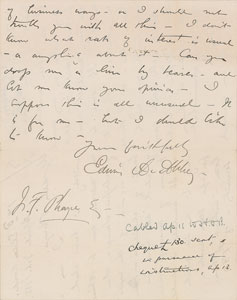 of business ways - or I should not
trouble you with all this - I don't
know what rate of interest is usual
- or anything about it - Can you
drop me a line by bearer - and
let me know your opinion - I
suppose this is all unusual - It
is for me - but I should like
to know -
Yours faithfully
Edwin A. Abbey
Esq -
Cabled Ap. 15
cheque sent,
in pursuance of
instructions, ap. 15